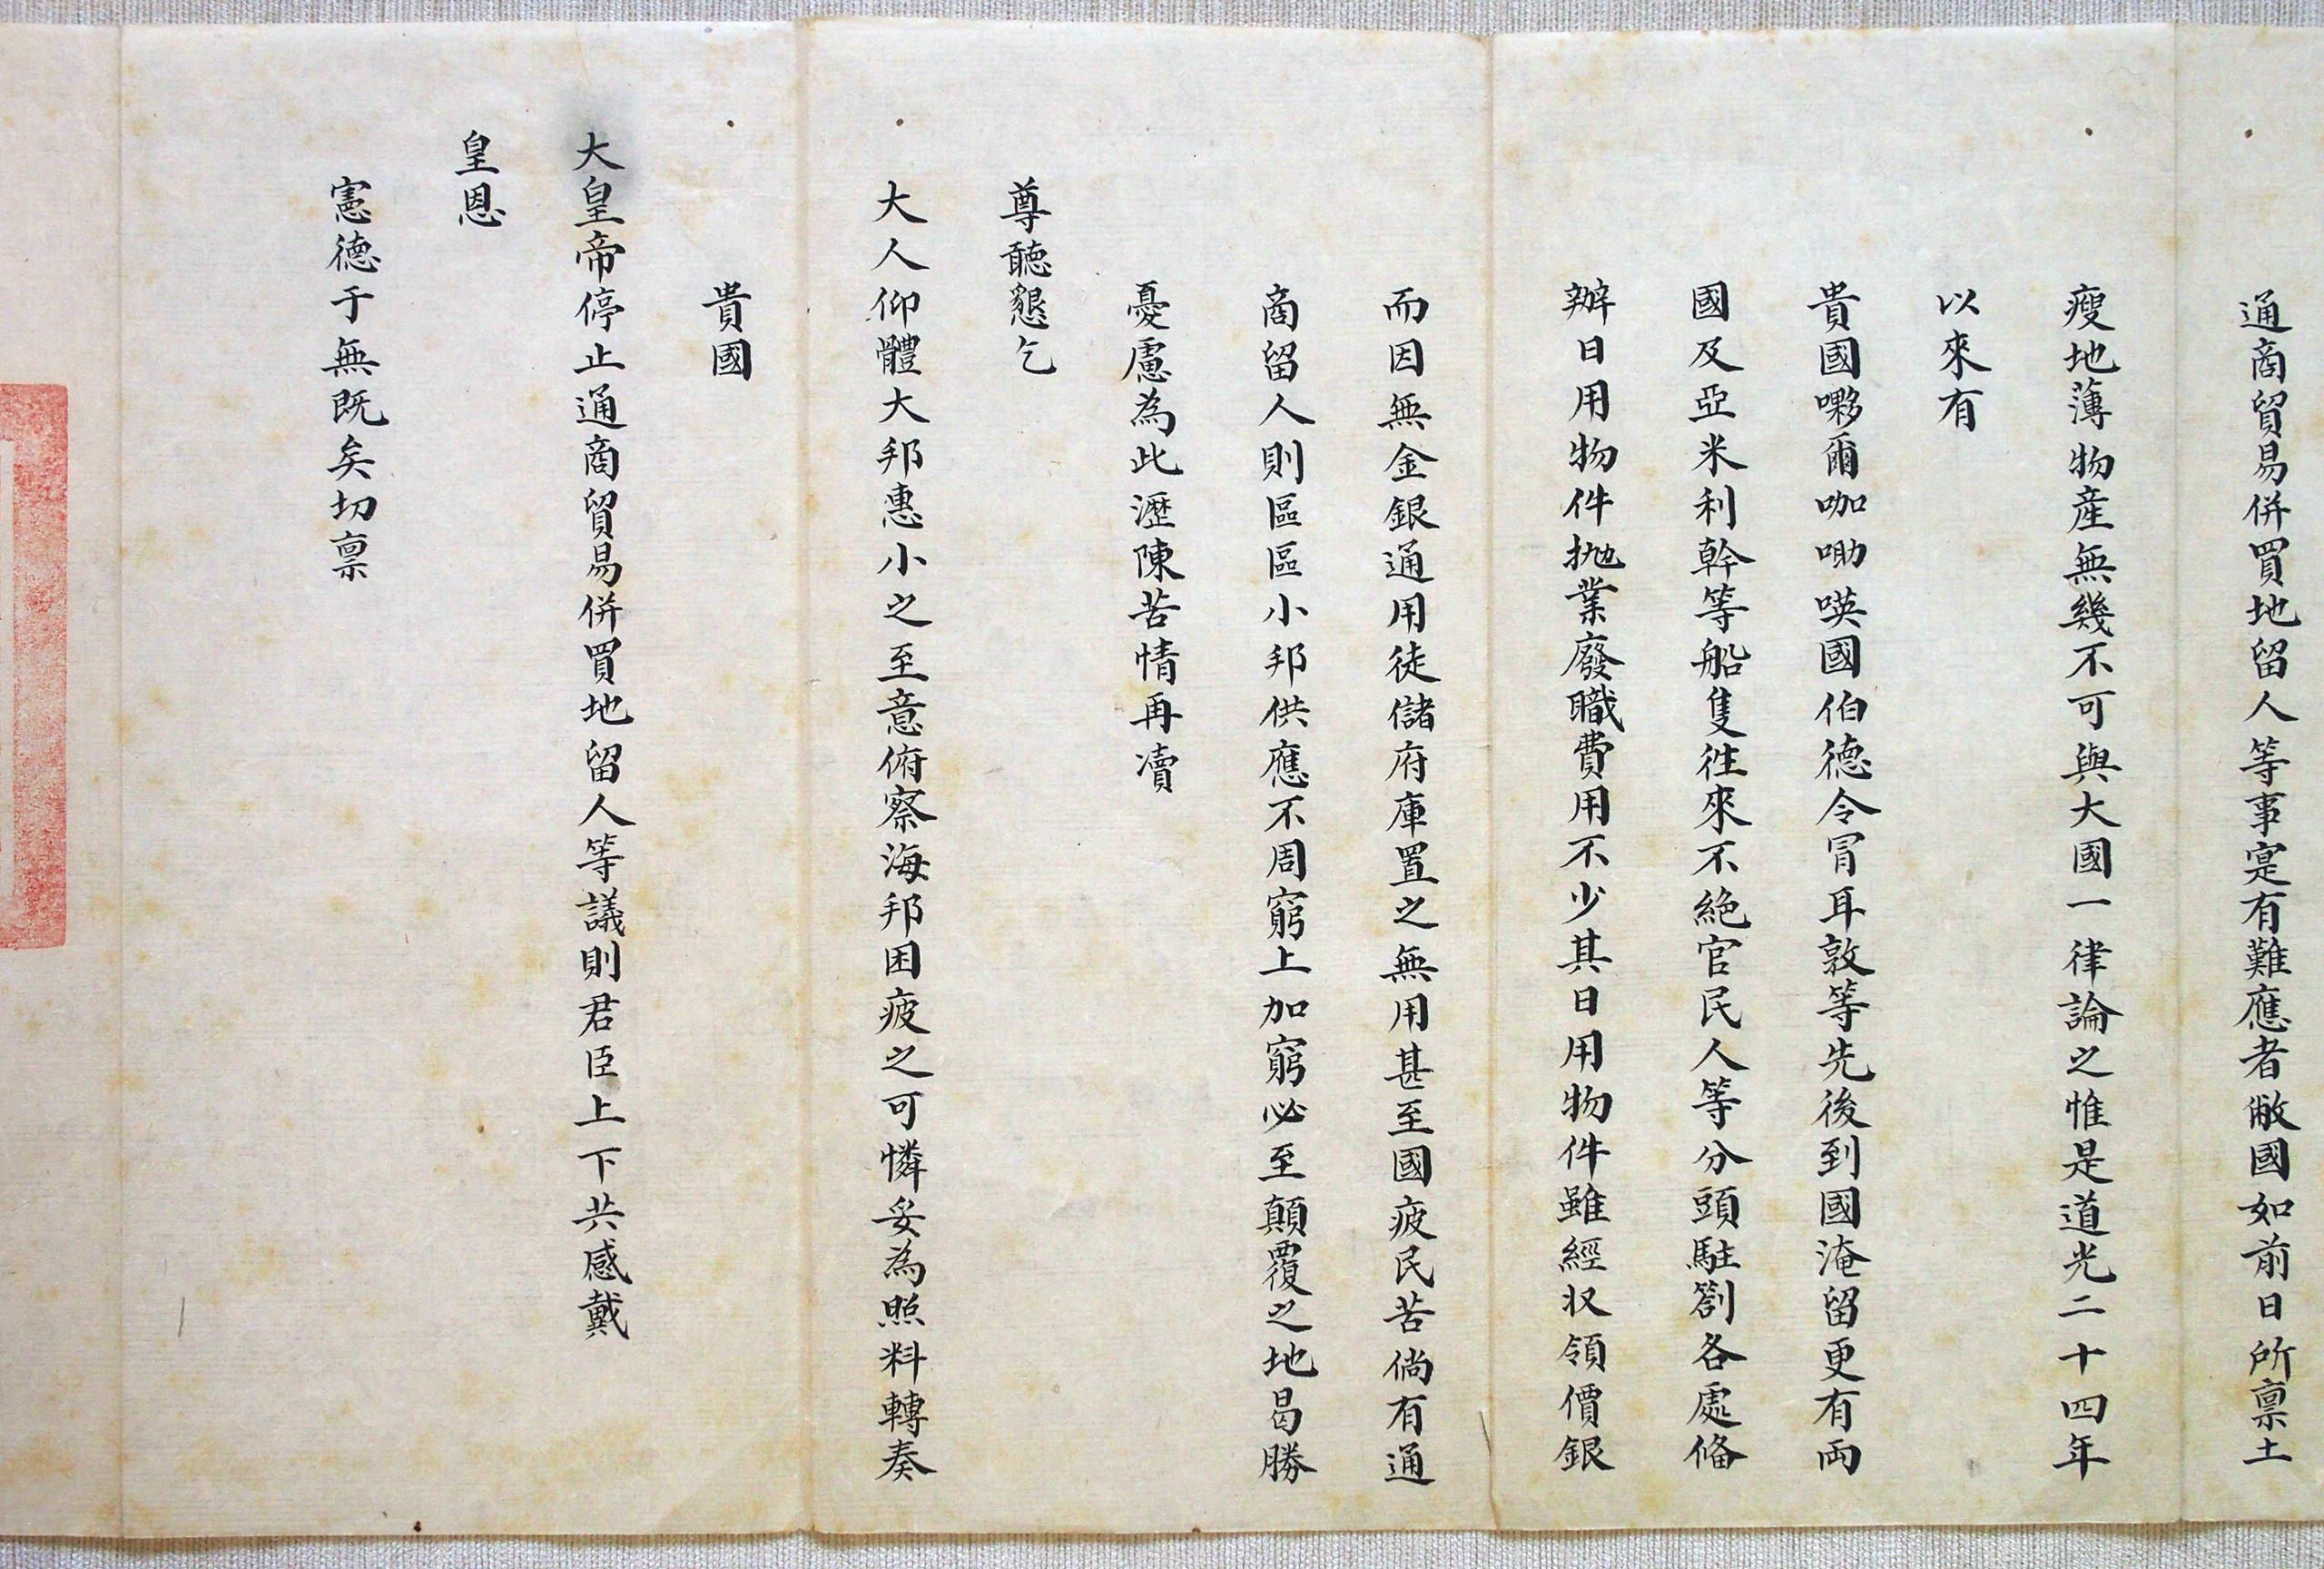 通商貿易併買地留人等事寔有難應者敝國如前日所禀土
瘦地薄物産無幾不可與大國一律論之惟是道光二十四年
以來有
貴國嘢爾咖嘞唊國伯德令冐耳敦等先後到國淹留更有両
國及亞米利幹等船隻徃來不絶官民人等分頭駐劄各處俻
辦日用物件抛業廢職費用不少其日用物件雖經収領價銀
而因無金銀通用徒儲府庫置之無用甚至國疲民苦倘有通
商留人則區區小邦供應不周窮上加窮必至顛覆之地曷勝
憂慮為此瀝陳苦情再凟
尊聽懇乞
大人仰體大邦惠小之至意俯察海邦困疲之可憐妥為照料轉奏
貴國
大皇帝停止通商貿易併買地留人等議則君臣上下共感戴
皇恩
憲德于無既矣切禀